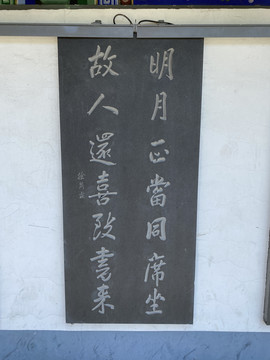 明月正當同席坐
故人還喜致書来